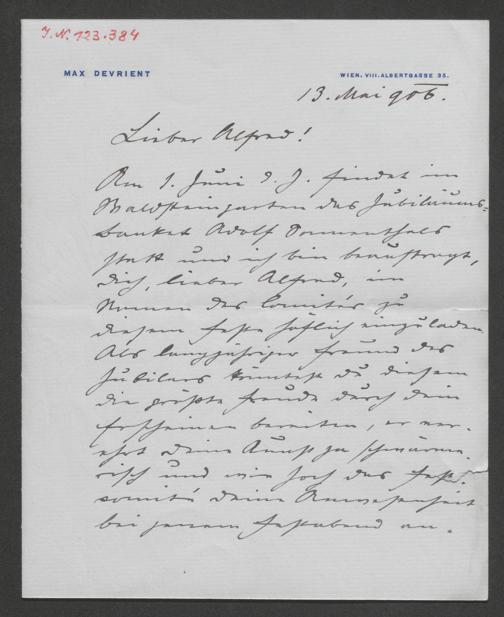 J.N. 123.384
MAX DEVRIENT
WIEN, VIII. ALBERTGASSE 35.
13. Mai 906.
Lieber Alfred!
Am 1. Juni d. J. findet im
Waldsteingarten das Jubiläums-
banket Adolf Sonnenthals
statt und ich bin beauftragt,
Dich, lieber Alfred, im
Namen des Comités zu
diesem Feste höflich einzuladen.
Als langjähriger Freund des
Jubilars könntest Du diesem
die größte Freude durch Dein
Erscheinen bereiten, er ver-
ehrt Deine Kunst ja schwärme-
risch und wie hoch das Fest-
comité Deine Anwesenheit
bei jenem Festabend an-